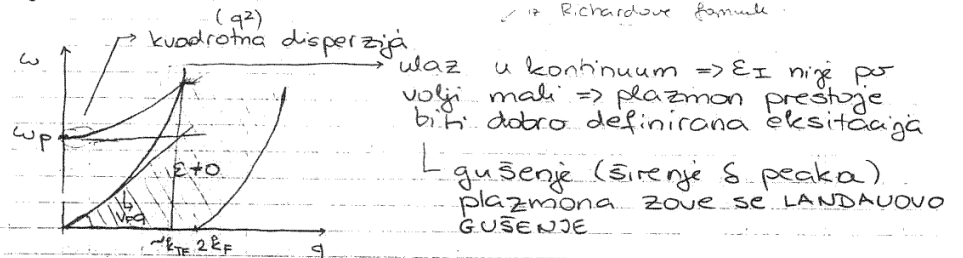 (q²)
iz Richardove formule.
kvadrotna disperzija
ω
ulaz u kontinuum => ε_I nije po
volji mali => plazmon prestaje
ωp
biti dobro definirana eksitacija
ε≠0
gušenje (širenje δ peaka)
plazmona zove se LANDAUOVO
GUŠENJE
v_F q
~k_TF 2k_F
q